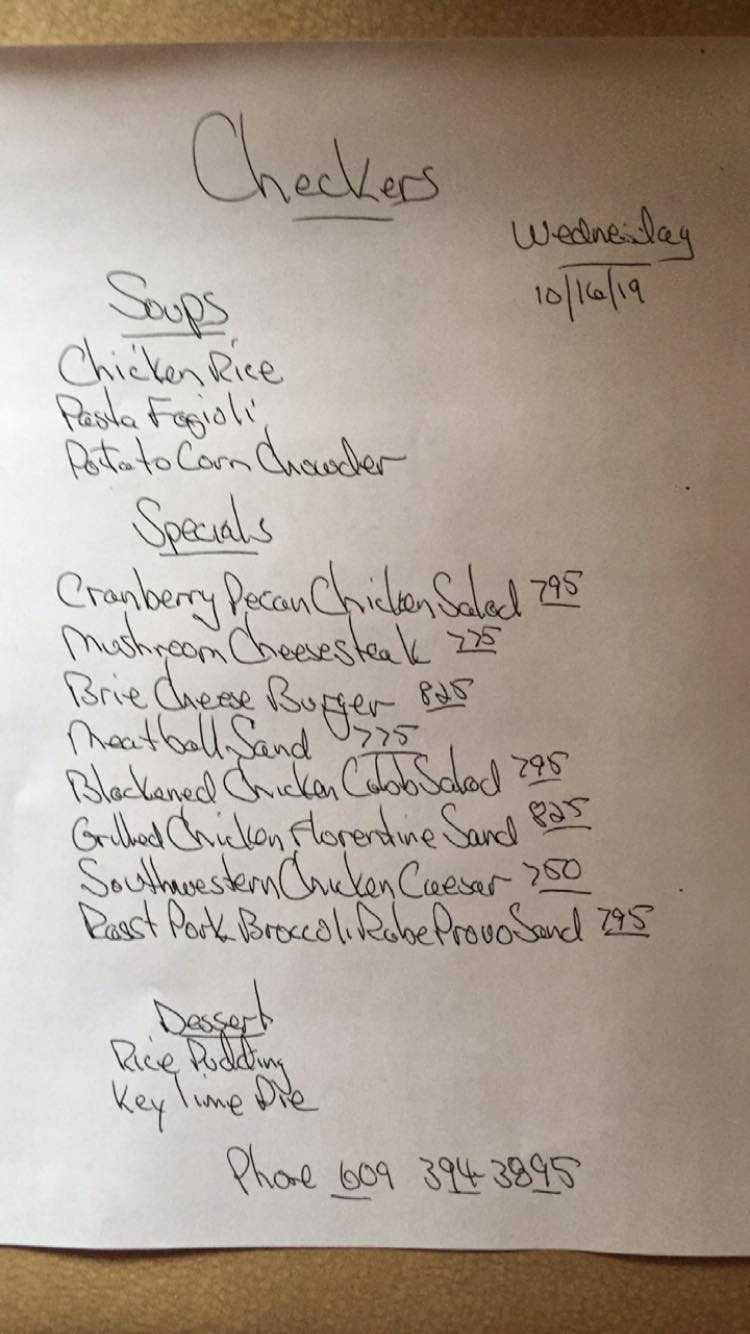 Checkers
Wednesday
10/16/19
Soups
Chicken Rice
Pasta Fagioli
Potato Corn Chowder
Specials
Cranberry Pecan Chicken Salad 795
Mushroom Cheesesteak 775
Brie Cheese Burger 825
Meatball Sand 775
Blackened Chicken Cobb Salad 795
Grilled Chicken Florentine Sand 825
Southwestern Chicken Caesar 750
Roast Pork Broccoli Rabe Provo Sand 795
Dessert
Rice Pudding
Key Lime Pie
Phone 609 394-3895